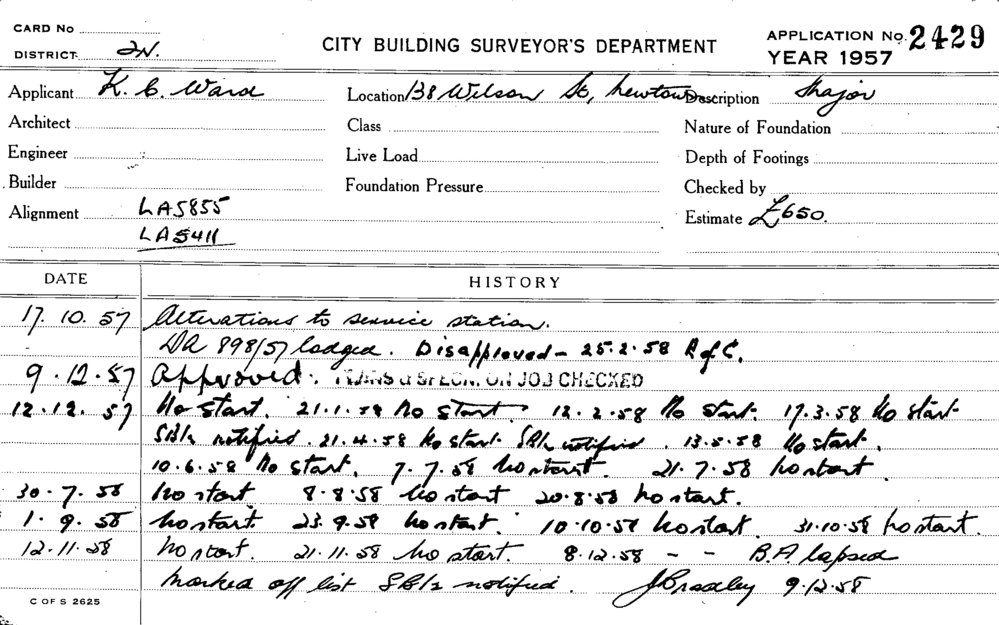 CARD No
DISTRICT 2N.
CITY BUILDING SURVEYOR'S DEPARTMENT
APPLICATION No. 2429
YEAR 1957
Applicant K. C. Ward Location 138 Wilson St, Newtown Description Major
Architect Class Nature of Foundation
Engineer Live Load Depth of Footings
Builder Foundation Pressure Checked by
Alignment LA5855 Estimate £650.
LA5411
DATE HISTORY
17.10.57 Alterations to service station.
DA 898/57 lodged. Disapproved - 25.2.58 R of C.
9.12.57 Approved. PLANS & SPECN. ON JOB CHECKED
12.12.57 No start. 21.1.58 No start. 12.2.58 No start. 17.3.58 No start
notified. 21.4.58 No start. notified. 13.5.58 No start.
10.6.58 No start. 7.7.58 No start. 21.7.58 No start
30.7.58 No start 8.8.58 No start 20.8.58 No start.
1.9.58 No start 23.9.58 No start. 10.10.58 No start 31.10.58 No start.
12.11.58 No start. 21.11.58 No start. 8.12.58 - - B.A. lapsed
Marked off list notified. J Bradley 9.12.58
C OF S 2625